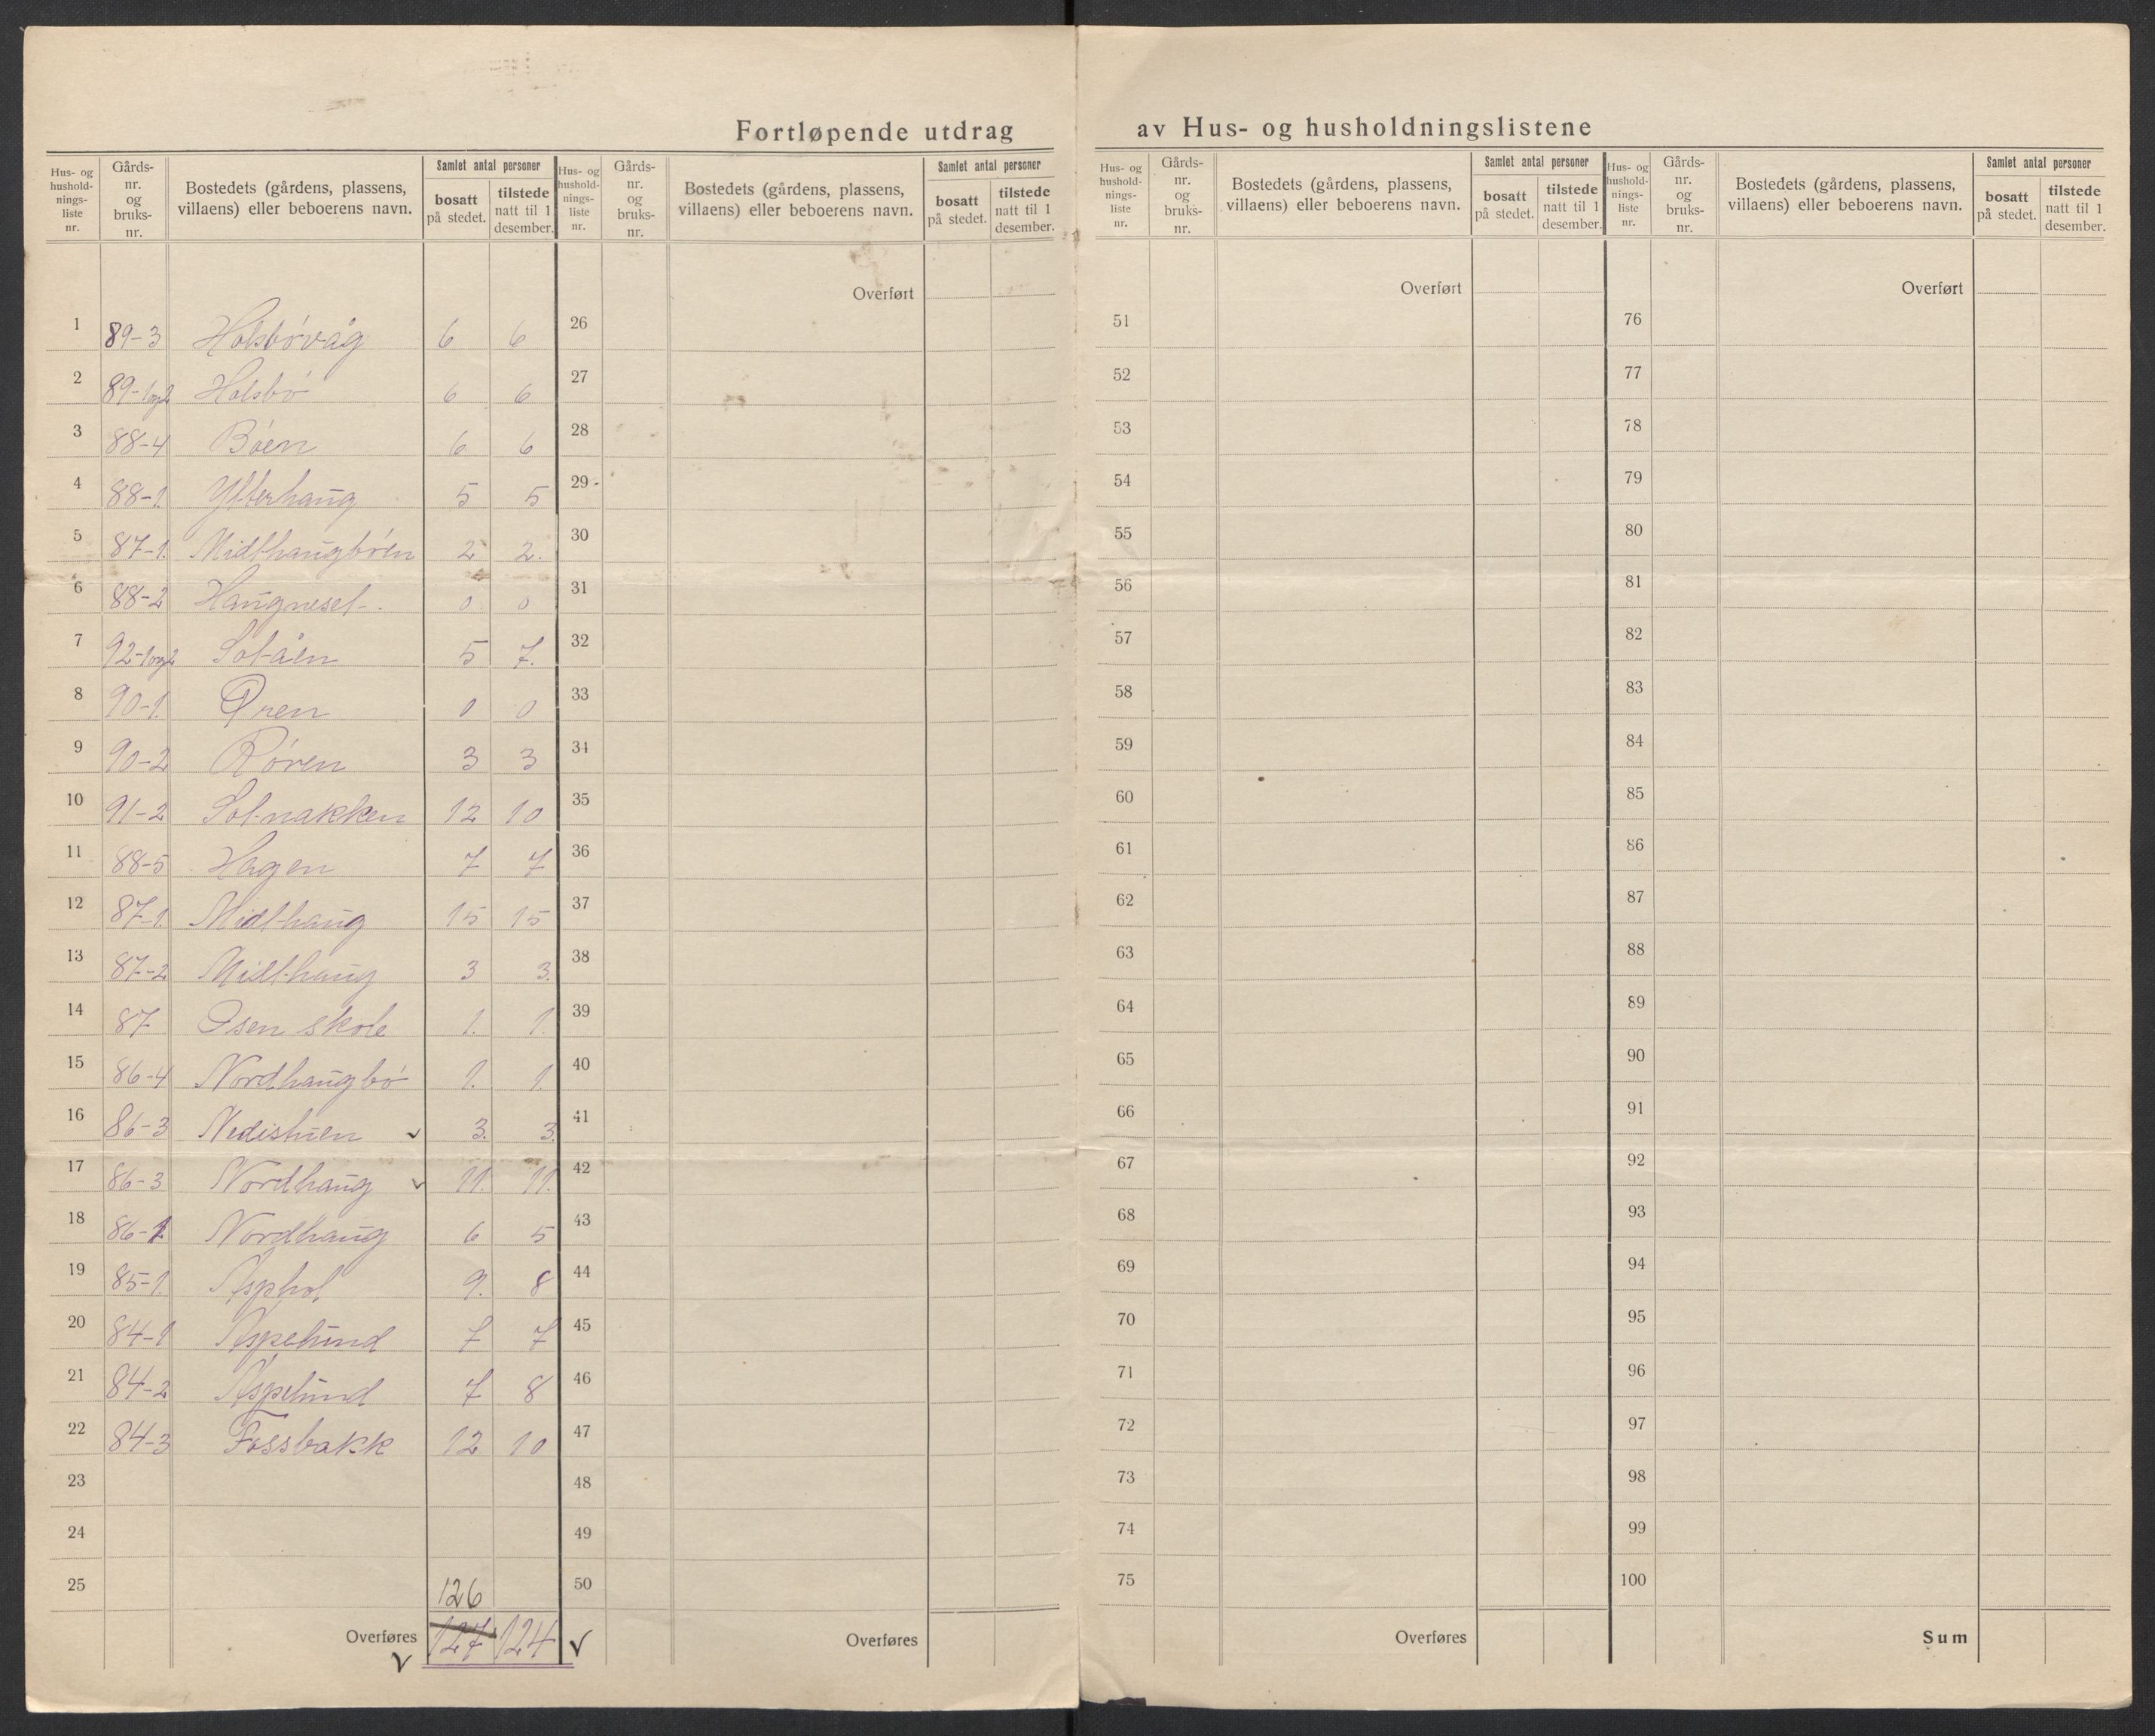 Fortløpende utdrag av Hus- og husholdningslistene
Hus- og hushold-nings-liste nr. Gårds-nr. og bruks-nr. Bostedets (gårdens, plassens, villaens) eller beboerens navn. Samlet antal personer bosatt på stedet. tilstede natt til 1 desember.
1 89-3 Holsbövåg 6 6
2 89-1og2 Holsbö 6 6
3 88-4 Böen 6 6
4 88-1. Ytterhaug 5 5
5 87-1. Midthaugböen 2 2.
6 88-2 Haugneset. 0 0
7 92-1og2 Solåen 5 7.
8 90-1. Øren 0 0
9 90-2 Røren 3 3
10 91-2 Solnakken 12 10
11 88-5 Hagen 7 7
12 87-1. Midthaug 15 15
13 87-2 Midthaug 3 3.
14 87 Osen skole 1. 1.
15 86-4 Nordhaugbö 1. 1.
16 86-3 Nedistuen 3. 3.
17 86-3 Nordhaug 11. 11.
18 86-1 Nordhaug 6 5
19 85-1. Asphol 9. 8
20 84-1 Aspelund 7 7
21 84-2 Aspelund 7 8
22 84-3 Fossbakk 12 10
23
24
25 126
Overføres 127 124
Hus- og hushold-nings-liste nr. Gårds-nr. og bruks-nr. Bostedets (gårdens, plassens, villaens) eller beboerens navn. Samlet antal personer bosatt på stedet. tilstede natt til 1 desember.
Overført
26
27
28
29
30
31
32
33
34
35
36
37
38
39
40
41
42
43
44
45
46
47
48
49
50
Overføres
Hus- og hushold-nings-liste nr. Gårds-nr. og bruks-nr. Bostedets (gårdens, plassens, villaens) eller beboerens navn. Samlet antal personer bosatt på stedet. tilstede natt til 1 desember.
Overført
51
52
53
54
55
56
57
58
59
60
61
62
63
64
65
66
67
68
69
70
71
72
73
74
75
Overføres
Hus- og hushold-nings-liste nr. Gårds-nr. og bruks-nr. Bostedets (gårdens, plassens, villaens) eller beboerens navn. Samlet antal personer bosatt på stedet. tilstede natt til 1 desember.
Overført
76
77
78
79
80
81
82
83
84
85
86
87
88
89
90
91
92
93
94
95
96
97
98
99
100
Sum